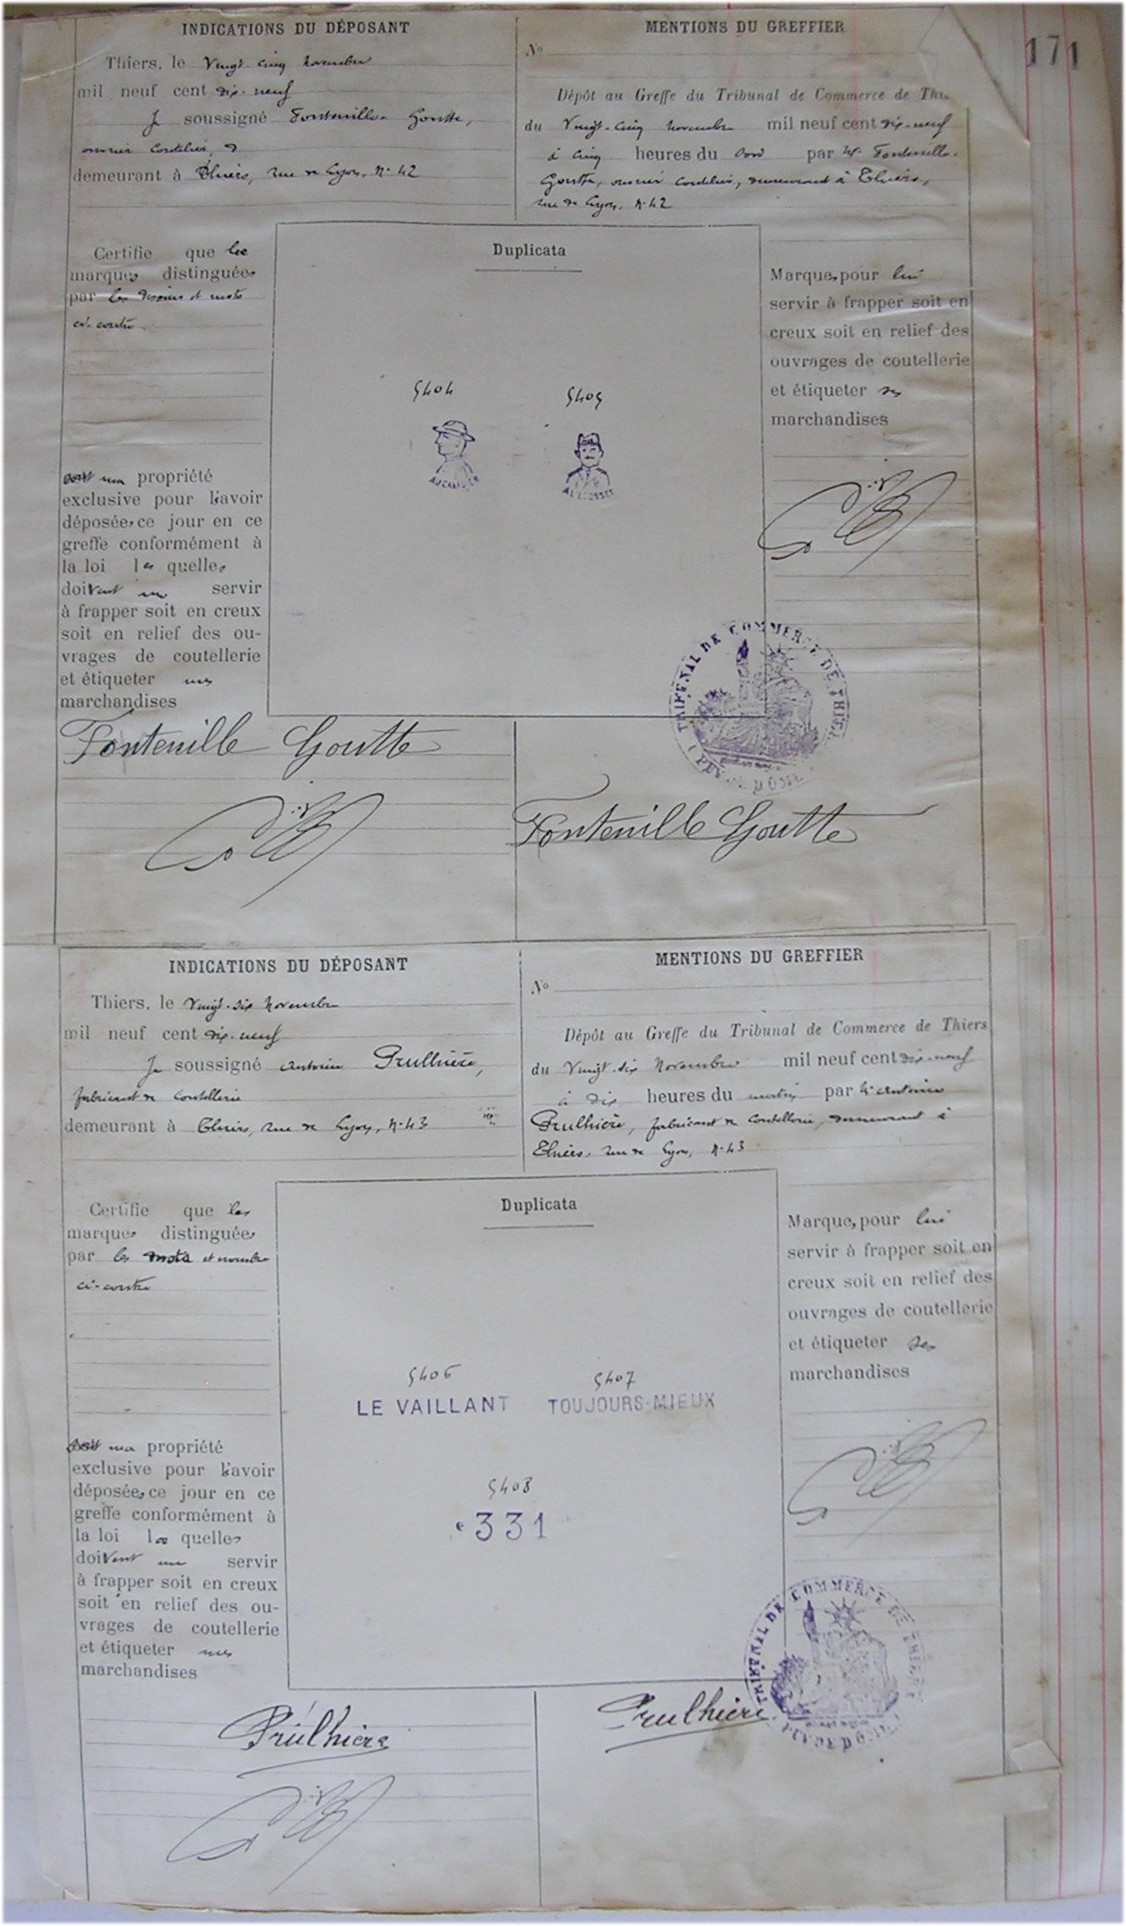 171
INDICATIONS DU DÉPOSANT
Thiers, le Vingt cinq novembre
mil neuf cent dix-neuf
Je soussigné Fontenille Goutte,
ouvrier coutelier,
demeurant à Thiers, rue de Lyon, N° 42
MENTIONS DU GREFFIER
N°
Dépôt au Greffe du Tribunal de Commerce de Thie
du Vingt-cinq novembre mil neuf cent dix-neuf
à cinq heures du soir par Mr Fontenille-
Goutte, ouvrier coutelier, demeurant à Thiers,
rue de Lyon, N° 42
Certifie que les
marques distinguées
par les dessins et mots
ci-contre
sont ma propriété
exclusive pour l'avoir
déposées ce jour en ce
greffe conformément à
la loi les quelles
doivent me servir
à frapper soit en creux
soit en relief des ou-
vrages de coutellerie
et étiqueter mes
marchandises
Duplicata
5404 5405
AU CANADIEN AU ECOSSE
Marques pour lui
servir à frapper soit en
creux soit en relief des
ouvrages de coutellerie
et étiqueter ses
marchandises
TRIBUNAL DE COMMERCE DE THIERS
(PUY DE DÔME)
Fontenille Goutte
Fontenille Goutte
INDICATIONS DU DÉPOSANT
Thiers, le Vingt-six novembre
mil neuf cent dix-neuf
Je soussigné Antoine Prulhière,
fabricant de coutellerie
demeurant à Thiers, rue de Lyon, N° 43
MENTIONS DU GREFFIER
N°
Dépôt au Greffe du Tribunal de Commerce de Thiers
du Vingt-six Novembre mil neuf cent dix-neuf
à dix heures du matin par Mr Antoine
Prulhière, fabricant de coutellerie, demeurant à
Thiers, rue de Lyon, N° 43
Certifie que les
marques distinguées
par les mots et nombre
ci-contre
sont ma propriété
exclusive pour l'avoir
déposées ce jour en ce
greffe conformément à
la loi les quelles
doivent me servir
à frapper soit en creux
soit en relief des ou-
vrages de coutellerie
et étiqueter mes
marchandises
Duplicata
5406 5407
LE VAILLANT TOUJOURS-MIEUX
5408
331
Marques pour lui
servir à frapper soit en
creux soit en relief des
ouvrages de coutellerie
et étiqueter ses
marchandises
TRIBUNAL DE COMMERCE DE THIERS
PUY DE DÔME
Prulhière
Prulhière